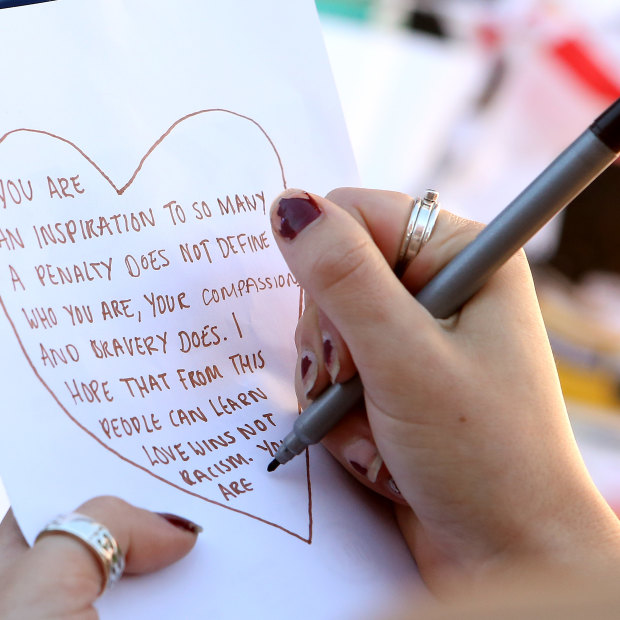 YOU ARE
AN INSPIRATION TO SO MANY
A PENALTY DOES NOT DEFINE
WHO YOU ARE, YOUR COMPASSION
AND BRAVERY DOES. I
HOPE THAT FROM THIS
PEOPLE CAN LEARN
LOVE WINS NOT
RACISM. YOU
ARE